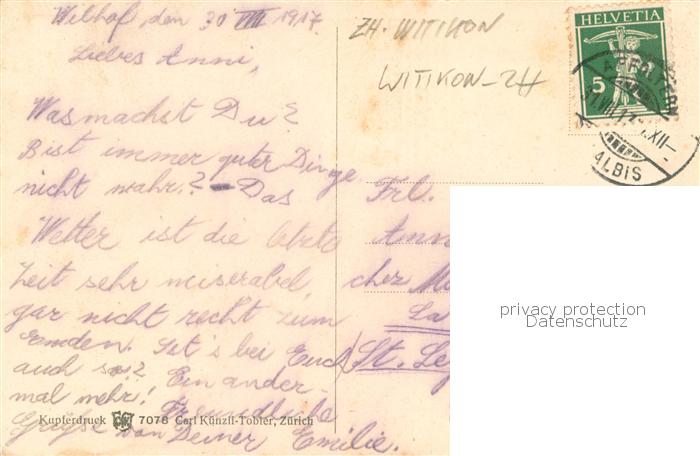 Wilhof den 30 VII 1917.
Liebes Anni,
Was machst Du?
Bist immer guter Dinge
nicht wahr? – Das
Wetter ist die letzte
Zeit sehr miserabel,
gar nicht recht zum
Emden. Ist's bei Euch
auch so? Ein ander-
mal mehr!
Freundliche
Grüsse von Deiner Emilie.
Kupferdruck 7078 Carl Künzli-Tobler, Zürich
ZH. WITIKON
WITIKON-ZH
HELVETIA
5
AFFOLTERN
ALBIS
Frl.
chez
St.
privacy protection
Datenschutz